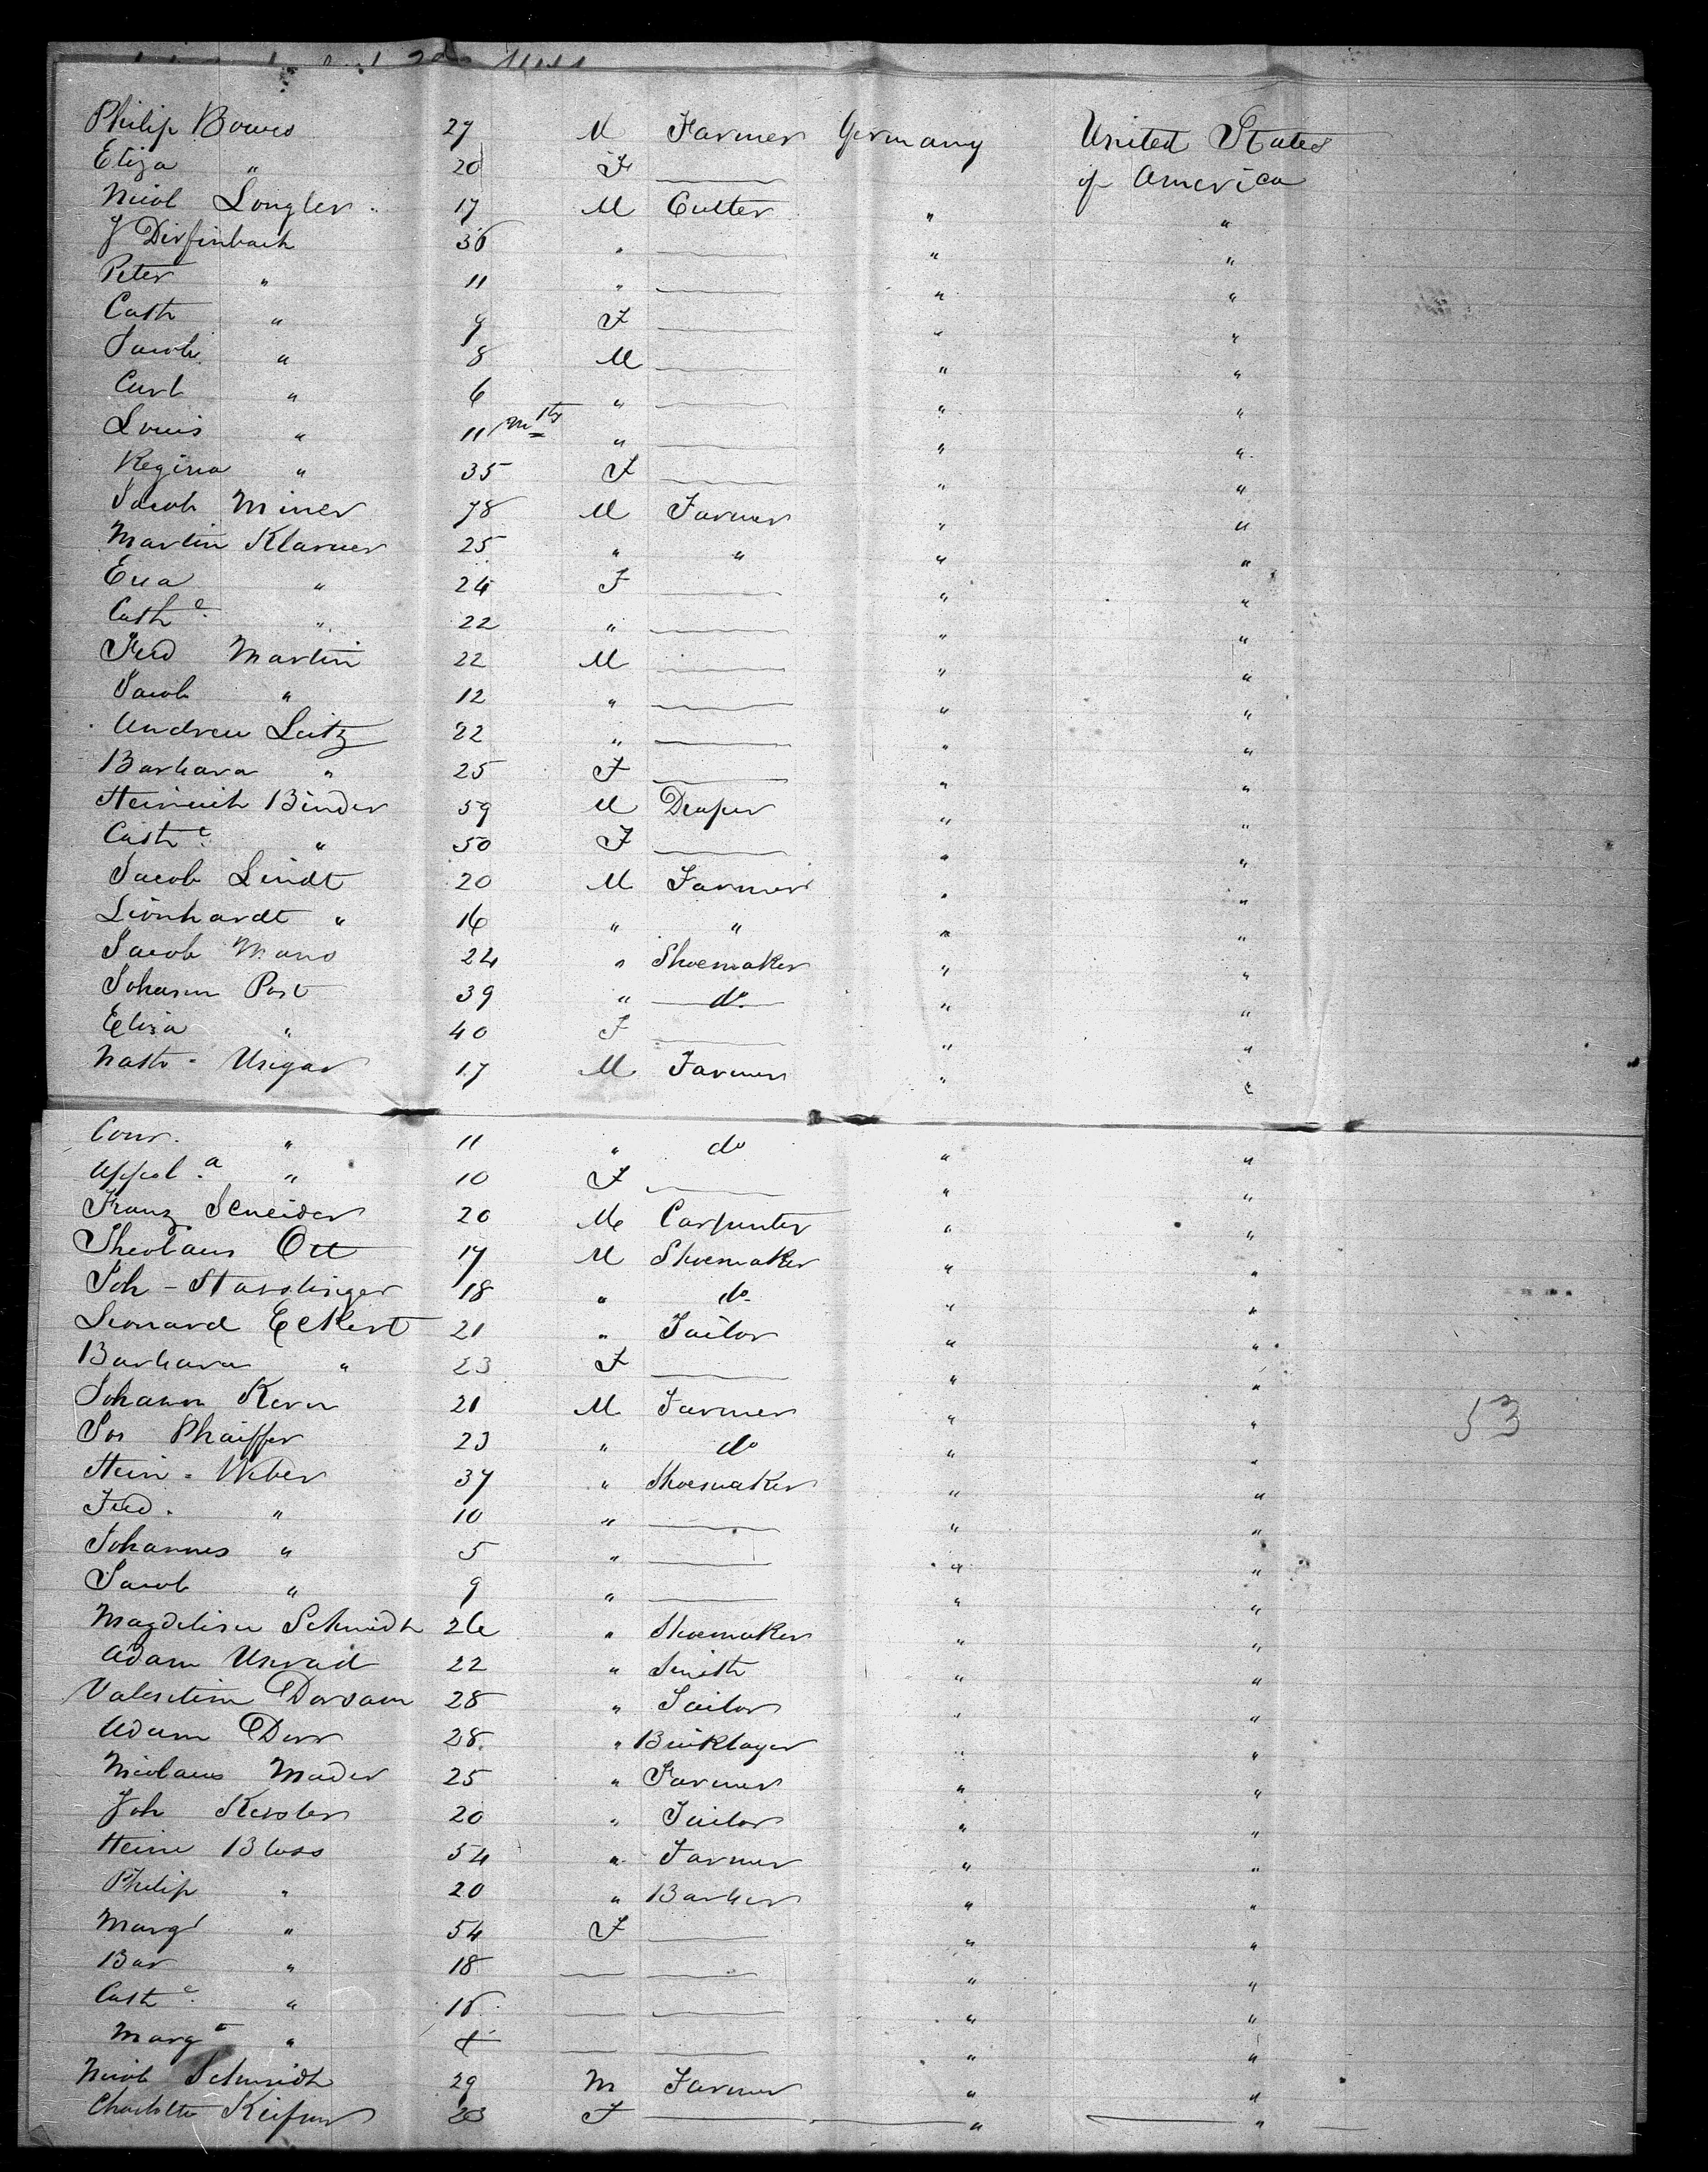 Philip Bowes 27 M Farmer Germany United States
Eliza " 20 F of America
Nicol Longler 17 M Cutter " "
J Dirfinbach 36 " " "
Peter " 11 " " "
Cath " 9 F " "
Jacob " 8 M " "
Carl " 6 " " "
Louis " 11 Mths " " "
Regina " 35 F " "
Jacob Miner 78 M Farmer " "
Martin Klarner 25 " " " "
Eva " 24 F " "
Cathe " 22 " " "
Fred Martin 22 M " "
Jacob " 12 " " "
Andrew Leitz 22 " " "
Barbara " 25 F " "
Heinrich Binder 59 M Draper " "
Cathe " 50 F " "
Jacob Lindt 20 M Farmer " "
Lionhardt " 16 " " " "
Jacob Mans 24 " Shoemaker " "
Johann Post 39 " do " "
Eliza " 40 F " "
Unigar 17 M Farmer " "
Conr. " 11 " do " "
Appol.a " 10 F " "
Franz Scneider 20 M Carpenter " "
Ott 17 M Shoemaker " "
Joh - 18 " do " "
Leonard Eckert 21 " Tailor " "
Barbara " 23 F " "
Johann Kern 21 M Farmer " "
Jos Phaiffer 23 " do " "
53
Hein - Weber 37 " Shoemaker " "
Fred. " 10 " " "
Johannes " 5 " " "
Jacob " 9 " " "
Magdelina Schmidt 26 " Shoemaker " "
Adam Unraid 22 " Smith " "
Valentin Dorsam 28 " Tailor " "
Adam Dorr 28 " Bricklayer " "
Nicolaus Mader 25 " Farmer " "
Joh Kessler 20 " Tailor " "
Heinr Bloss 54 " Farmer " "
Philip " 20 " Barber " "
Margt " 54 F " "
Bar " 18 " "
Cathe " 16 " "
Marg " " "
Nicob Schmidt 29 M Farmer " "
Charlotte 23 F " "